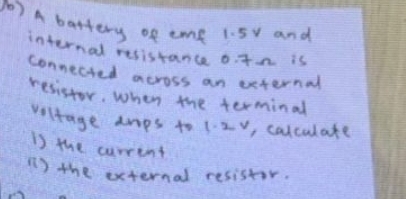 b) A battery of emf 1.5V and
internal resistance 0.7Ω is
connected across an external
resistor. When the terminal
voltage drops to 1.2V, calculate
i) the current
ii) the external resistor.